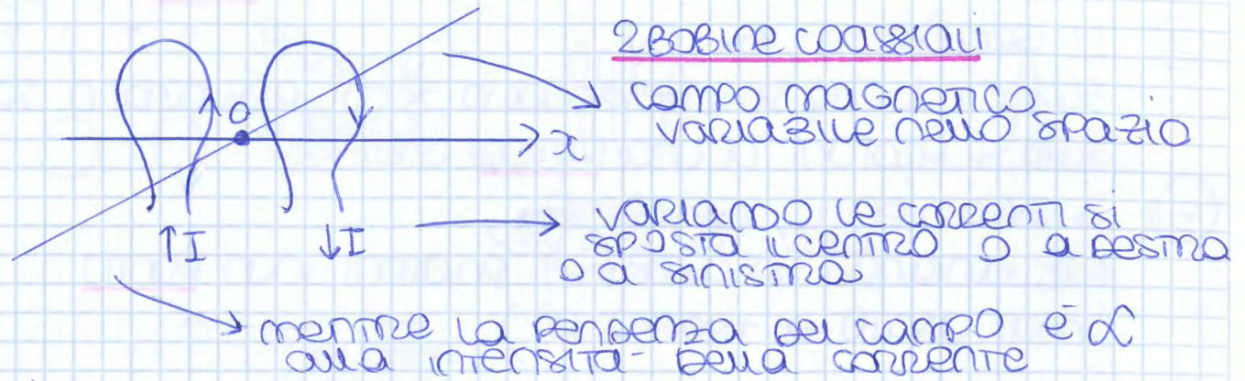 2 BOBINE COASSIALI
CAMPO MAGNETICO
VARIABILE NELLO SPAZIO
O
x
↑I
↓I
VARIANDO LE CORRENTI SI
SPOSTA IL CENTRO O A DESTRA
O A SINISTRA
MENTRE LA PENDENZA DEL CAMPO È ∝
ALLA INTENSITA- DELLA CORRENTE